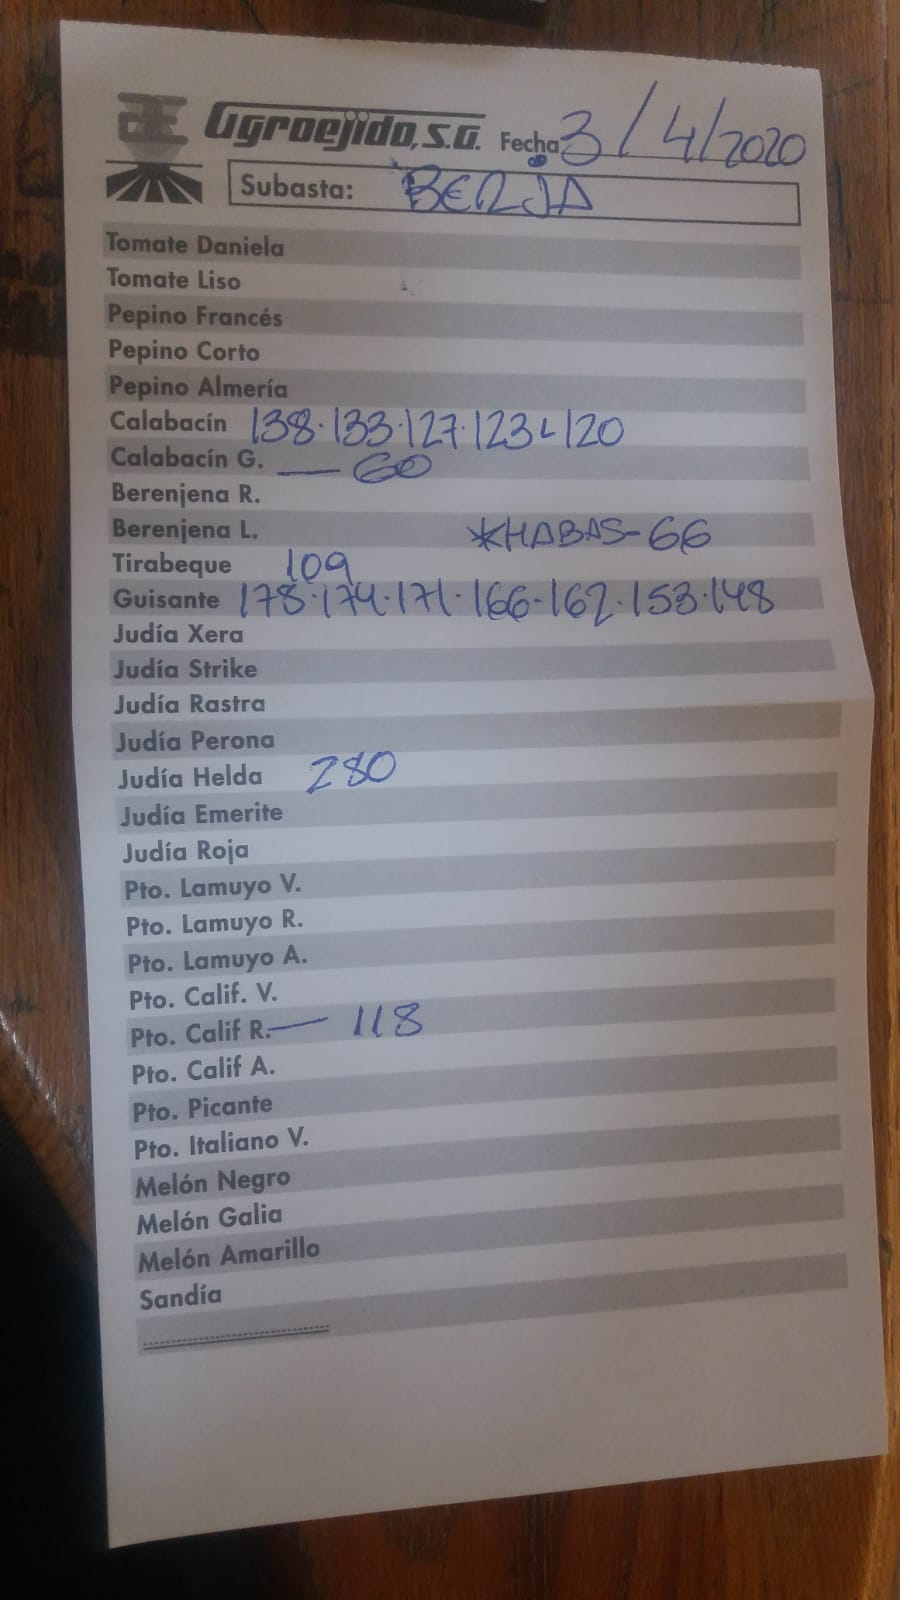 Agroejido, S.A. Fecha 3/4/2020
Subasta: BERJA
Tomate Daniela
Tomate Liso
Pepino Francés
Pepino Corto
Pepino Almería
Calabacín 138·133·127·123 L 120
Calabacín G. — 60
Berenjena R.
Berenjena L. *HABAS-66
Tirabeque 109
Guisante 178·174·171·166-162·153·148
Judía Xera
Judía Strike
Judía Rastra
Judía Perona
Judía Helda 280
Judía Emerite
Judía Roja
Pto. Lamuyo V.
Pto. Lamuyo R.
Pto. Lamuyo A.
Pto. Calif. V.
Pto. Calif R. — 118
Pto. Calif A.
Pto. Picante
Pto. Italiano V.
Melón Negro
Melón Galia
Melón Amarillo
Sandía